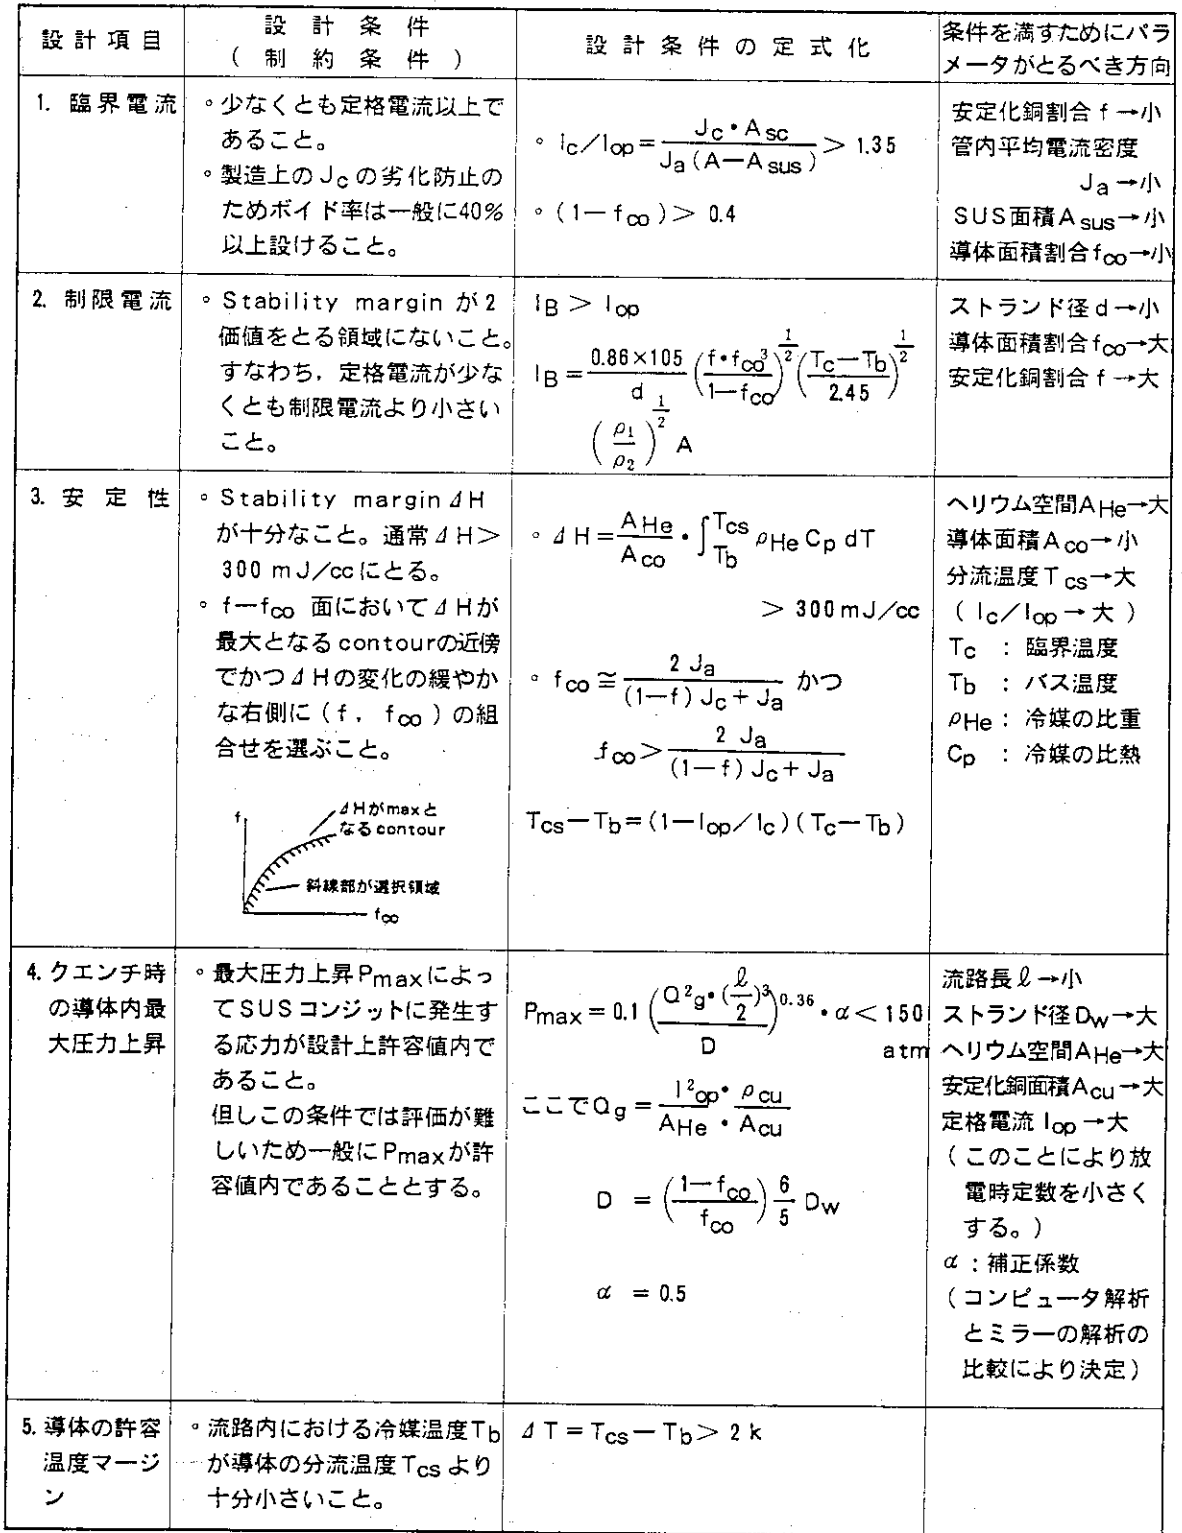 設計項目
設計条件
(制約条件)
設計条件の定式化
条件を満すためにパラ
メータがとるべき方向
1. 臨界電流
◦少なくとも定格電流以上で
あること。
◦製造上のJcの劣化防止の
ためボイド率は一般に40%
以上設けること。
◦ Ic/Iop = Jc・Asc / Ja(A−Asus) > 1.35
◦ (1−fco) > 0.4
安定化銅割合 f→小
管内平均電流密度
Ja→小
SUS面積Asus→小
導体面積割合fco→小
2. 制限電流
◦Stability margin が2
価値をとる領域にないこと。
すなわち,定格電流が少な
くとも制限電流より小さい
こと。
IB > Iop
IB = 0.86×105 / d (f・fco³ / 1−fco)^1/2 (Tc−Tb / 2.45)^1/2
(ρ1 / ρ2)^1/2 A
ストランド径 d→小
導体面積割合fco→大
安定化銅割合 f→大
3. 安定性
◦Stability margin ΔH
が十分なこと。通常ΔH>
300 mJ/ccにとる。
◦f−fco 面においてΔHが
最大となるcontourの近傍
でかつΔHの変化の緩やか
な右側に(f, fco)の組
合せを選ぶこと。
f
ΔHがmaxと
なるcontour
斜線部が選択領域
fco
◦ ΔH = AHe / Aco ・ ∫Tb Tcs ρHe Cp dT
> 300mJ/cc
◦ fco ≅ 2 Ja / (1−f) Jc + Ja かつ
fco > 2 Ja / (1−f) Jc + Ja
Tcs−Tb = (1−Iop/Ic)(Tc−Tb)
ヘリウム空間AHe→大
導体面積Aco→小
分流温度Tcs→大
(Ic/Iop→大)
Tc : 臨界温度
Tb : バス温度
ρHe : 冷媒の比重
Cp : 冷媒の比熱
4. クエンチ時
の導体内最
大圧力上昇
◦最大圧力上昇Pmaxによっ
てSUSコンジットに発生す
る応力が設計上許容値内で
あること。
但しこの条件では評価が難
しいため一般にPmaxが許
容値内であることとする。
Pmax = 0.1 (Q²g・(ℓ/2)³ / D)^0.36・α < 150
atm
ここでQg = I²op・ρcu / AHe・Acu
D = (1−fco / fco) 6/5 Dw
α = 0.5
流路長ℓ→小
ストランド径Dw→大
ヘリウム空間AHe→大
安定化銅面積Acu→大
定格電流 Iop→大
(このことにより放
電時定数を小さく
する。)
α : 補正係数
(コンピュータ解析
とミラーの解析の
比較により決定)
5. 導体の許容
温度マージ
ン
◦流路内における冷媒温度Tb
が導体の分流温度Tcsより
十分小さいこと。
ΔT = Tcs−Tb > 2 k